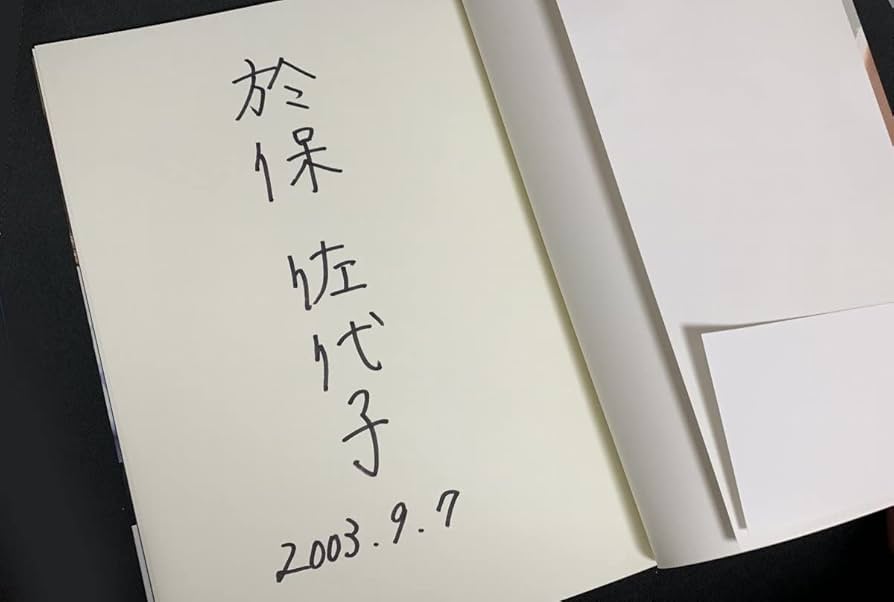 於保 佐代子
2003.9.7